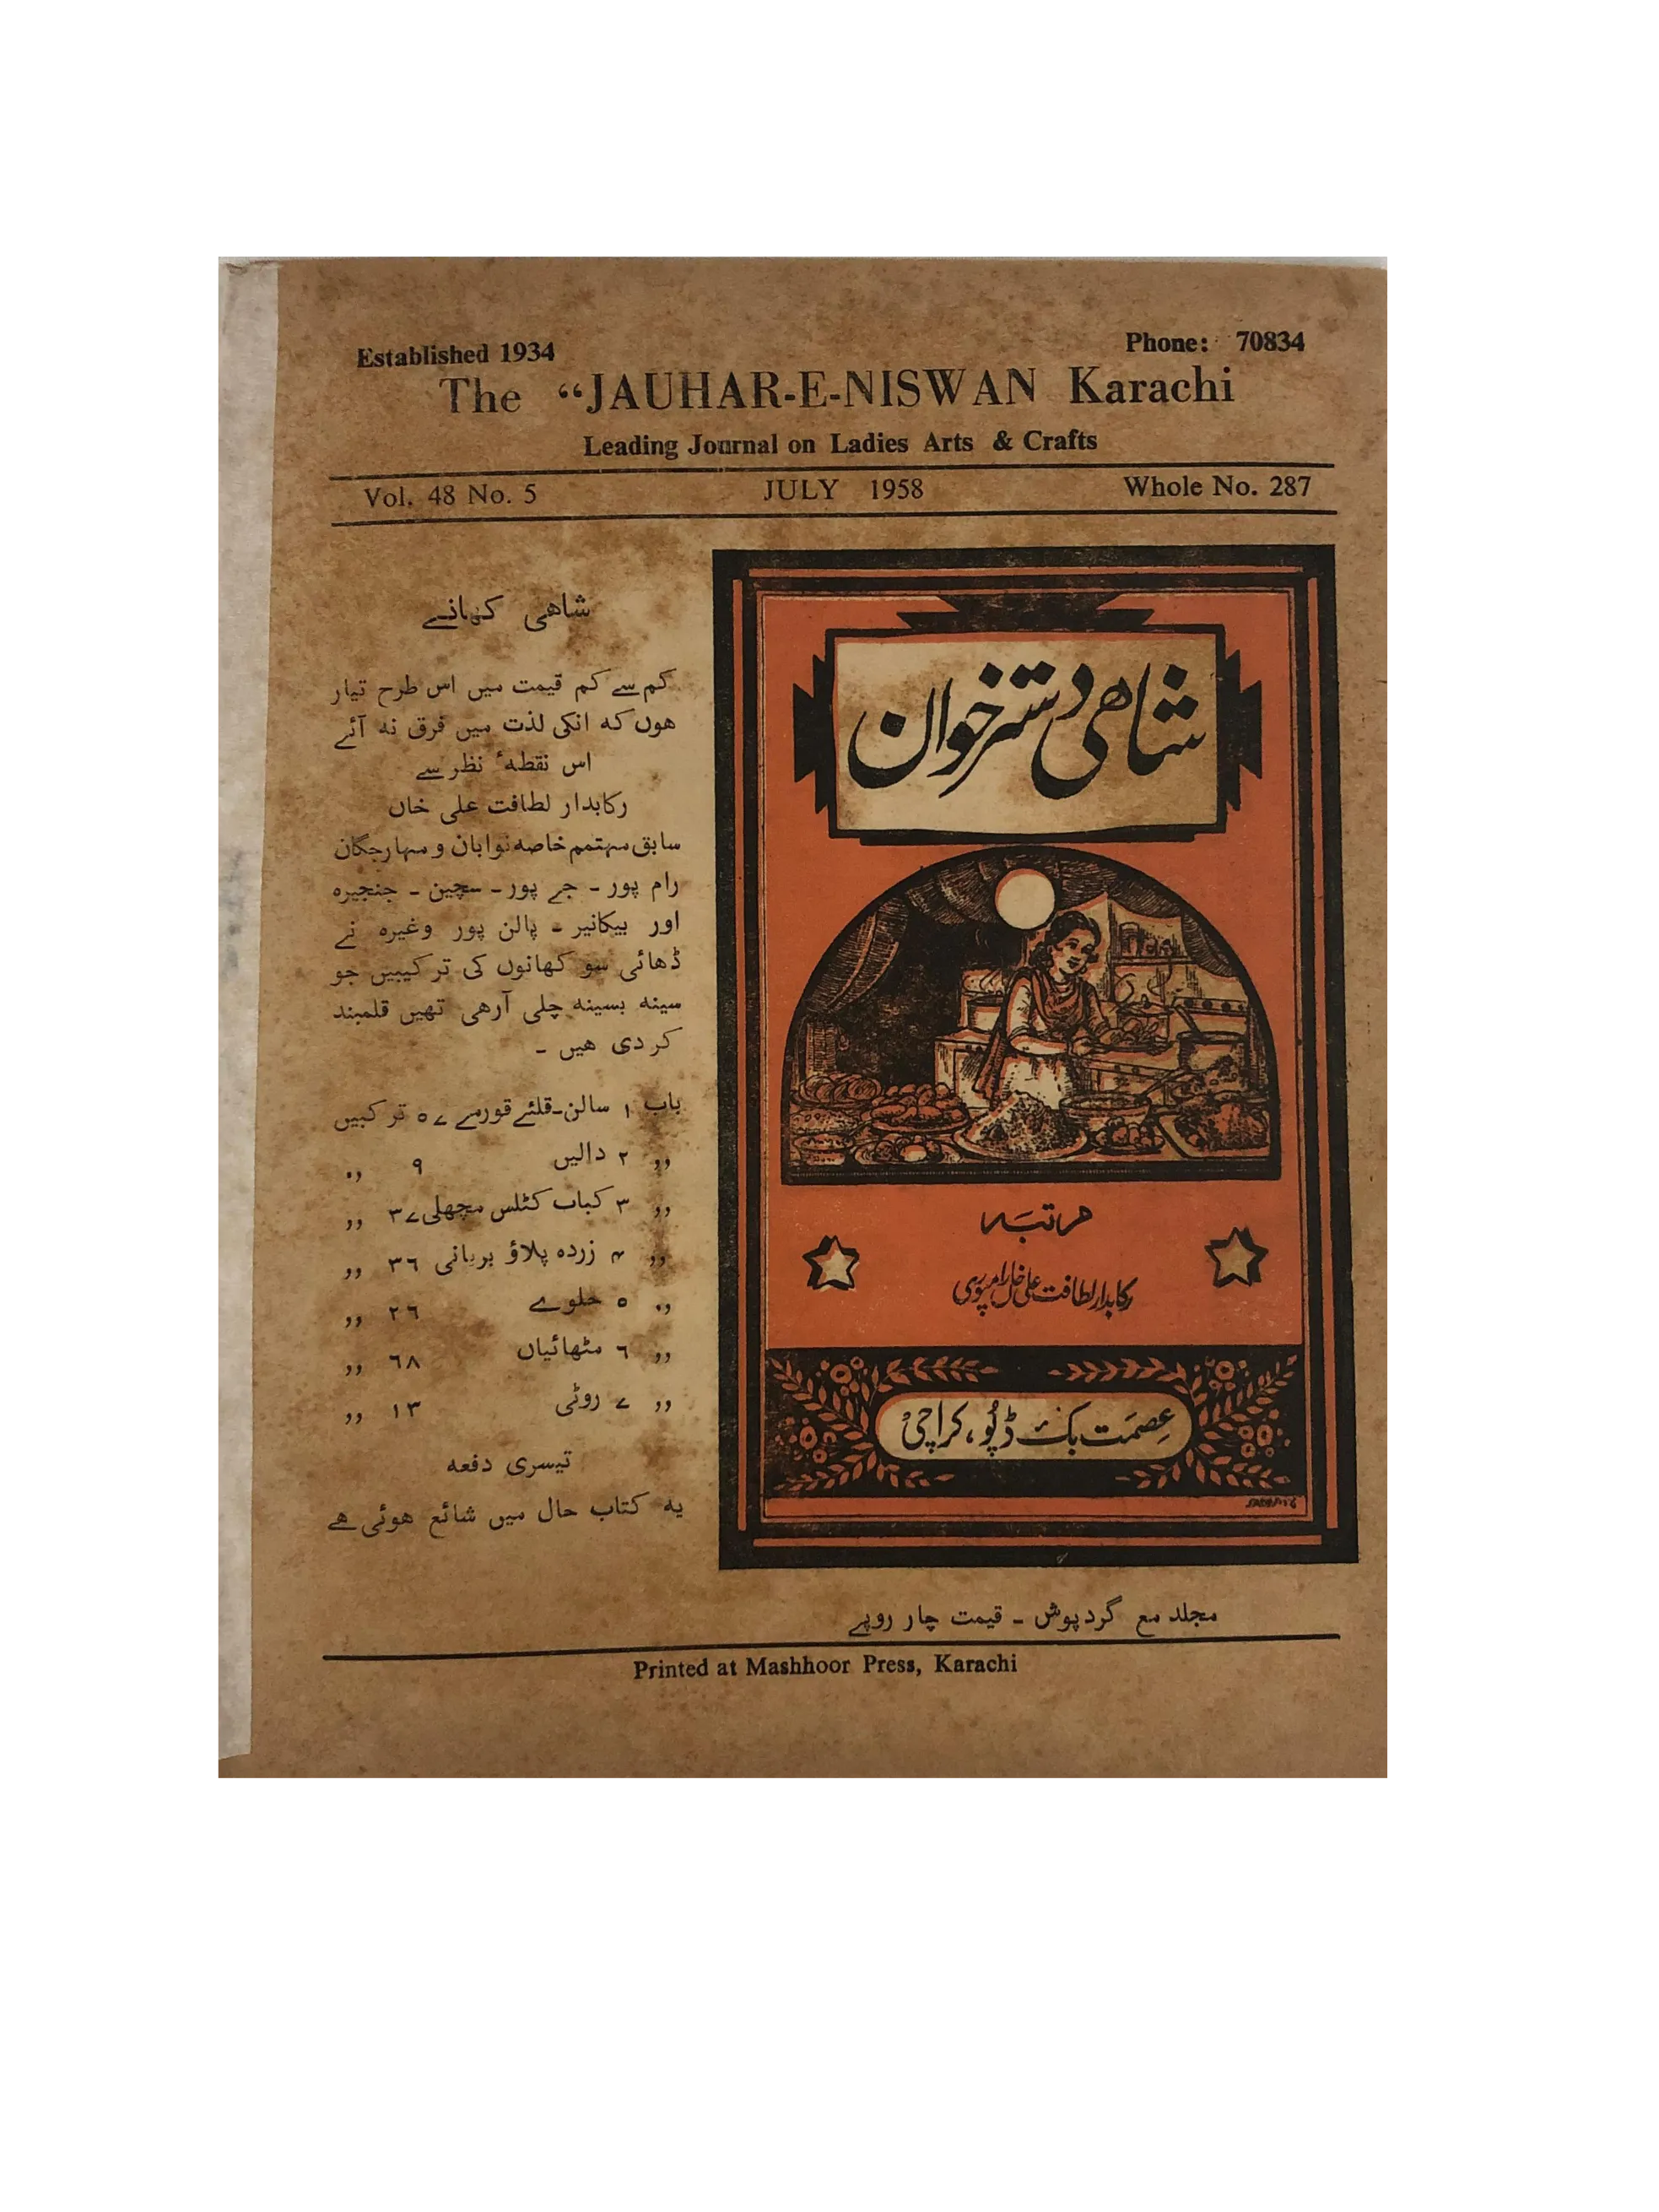 Established 1934
Phone: 70834
The “JAUHAR-E-NISWAN Karachi
Leading Journal on Ladies Arts & Crafts
Vol. 48 No. 5 JULY 1958 Whole No. 287
شاھی کھانے
کم سے کم قیمت میں اس طرح تیار
ھوں کہ انکی لذت میں فرق نہ آئے
اس نقطہٴ نظر سے
رکابدار لطافت علی خاں
سابق مہتمم خاصہ نوابان و مہارجگان
رام پور - جے پور - سچین - جنجیرہ
اور بیکانیر - پالن پور وغیرہ نے
ڈھائی سو کھانوں کی ترکیبیں جو
سینہ بسینہ چلی آرھی تھیں قلمبند
کر دی ھیں -
باب ۱ سالن-قلئے قورمے ۵۷ ترکیبیں
,, ۲ دالیں ۹ ,,
,, ۳ کباب کٹلس مچھلی ۳۷ ,,
,, ۴ زردہ پلاؤ بریانی ۳٦ ,,
,, ۵ حلوے ۲٦ ,,
,, ٦ مٹھائیاں ٦۸ ,,
,, ۷ روٹی ۱۳ ,,
تیسری دفعہ
یہ کتاب حال میں شائع ھوئی ھے
شاھی دسترخوان
مرتبہ
رکابدار لطافت علی خاں رامپوری
عصمت بک ڈپو، کراچی
مجلد مع گردپوش - قیمت چار روپے
Printed at Mashhoor Press, Karachi